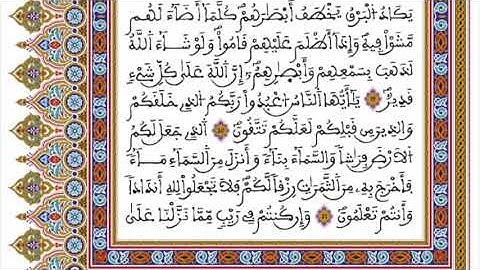 يَكَادُ الْبَرْقُ يَخْطَفُ أَبْصَٰرَهُمْ كُلَّمَا أَضَاءَ لَهُم
مَّشَوْا فِيهِ وَإِذَا أَظْلَمَ عَلَيْهِمْ قَامُوا وَلَوْ شَاءَ اللَّهُ
لَذَهَبَ بِسَمْعِهِمْ وَأَبْصَٰرِهِمْ إِنَّ اللَّهَ عَلَىٰ كُلِّ شَيْءٍ
قَدِيرٌ يَٰأَيُّهَا النَّاسُ اعْبُدُوا رَبَّكُمُ الَّذِي خَلَقَكُمْ
وَالَّذِينَ مِن قَبْلِكُمْ لَعَلَّكُمْ تَتَّقُونَ الَّذِي جَعَلَ لَكُمُ
الْأَرْضَ فِرَٰشًا وَالسَّمَاءَ بِنَاءً وَأَنزَلَ مِنَ السَّمَاءِ مَاءً
فَأَخْرَجَ بِهِ مِنَ الثَّمَرَٰتِ رِزْقًا لَّكُمْ فَلَا تَجْعَلُوا لِلَّهِ أَندَادًا
وَأَنتُمْ تَعْلَمُونَ وَإِن كُنتُمْ فِي رَيْبٍ مِّمَّا نَزَّلْنَا عَلَىٰ